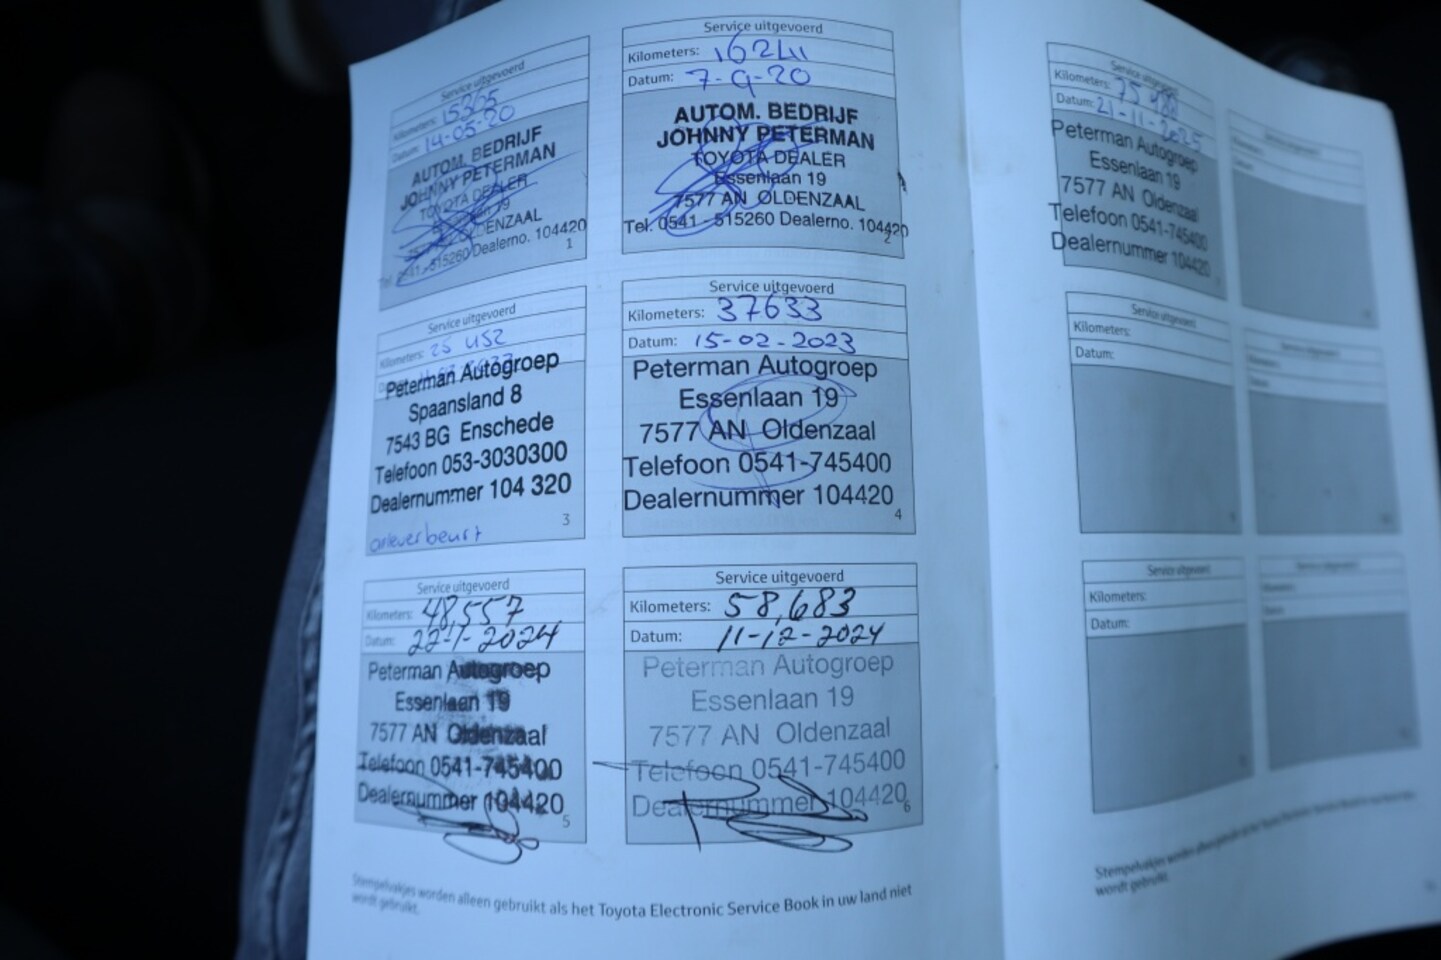 Service uitgevoerd
Kilometers: 15365
Datum: 14-05-20
AUTOM. BEDRIJF
JOHNNY PETERMAN
TOYOTA DEALER
OLDENZAAL
Tel. 0541-515260 Dealerno. 104420
1
Service uitgevoerd
Kilometers: 16241
Datum: 7-9-20
AUTOM. BEDRIJF
JOHNNY PETERMAN
TOYOTA DEALER
Essenlaan 19
7577 AN OLDENZAAL
Tel. 0541-515260 Dealerno. 104420
2
Service uitgevoerd
Kilometers: 25 452
Peterman Autogroep
Spaansland 8
7543 BG Enschede
Telefoon 053-3030300
Dealernummer 104 320
onleverbeurt
3
Service uitgevoerd
Kilometers: 37633
Datum: 15-02-2023
Peterman Autogroep
Essenlaan 19
7577 AN Oldenzaal
Telefoon 0541-745400
Dealernummer 104420
4
Service uitgevoerd
Kilometers: 48,557
Datum: 22-1-2024
Peterman Autogroep
Essenlaan 19
7577 AN Oldenzaal
Telefoon 0541-745400
Dealernummer 104420
5
Service uitgevoerd
Kilometers: 58,683
Datum: 11-12-2024
Peterman Autogroep
Essenlaan 19
7577 AN Oldenzaal
Telefoon 0541-745400
Dealernummer 104420
6
Stempelvakjes worden alleen gebruikt als het Toyota Electronic Service Book in uw land niet
wordt gebruikt.
Service uitgevoerd
Kilometers: 75
Datum: 21-11-2025
Peterman Autogroep
Essenlaan 19
7577 AN Oldenzaal
Telefoon 0541-745400
Dealernummer 104420
Service uitgevoerd
Kilometers:
Datum:
Service uitgevoerd
Kilometers:
Datum:
Stempelvakjes worden alleen gebruikt als het Toyota Electronic Service Book in uw land niet
wordt gebruikt.